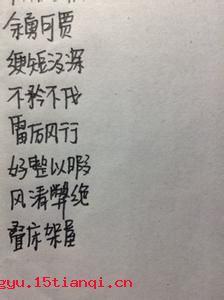 余勇可贾
绠短汲深
不矜不伐
雷厉风行
好整以暇
风清弊绝
叠床架屋
gyu.15tianqi.cn